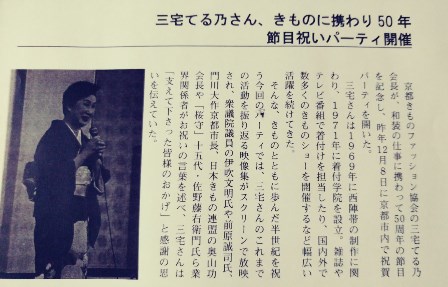 三宅てる乃さん、きものに携わり50年
節目祝いパーティ開催
京都きものファッション協会の三宅てる乃
会長が、和装の仕事に携わって50周年の節目
を記念し、昨年12月8日に京都市内で祝賀
パーティを開いた。
三宅さんは1969年に西陣帯の制作に関
わり、1971年に着付学院を設立。雑誌や
テレビ番組で着付けを担当したり、国内外で
数多くのきものショーを開催するなど幅広い
活躍を続けてきた。
そんな、きものとともに歩んだ半世紀を祝
う今回のパーティでは、三宅さんのこれまで
の活動を振り返る映像集がスクリーンで放映
され、衆議院議員の伊吹文明氏や前原誠司氏、
門川大作京都市長、日本きもの連盟の奥山功
会長や「桜守」十五代・佐野藤右衛門氏ら業
界関係者がお祝いの言葉を述べ、三宅さんは
「支えて下さった皆様のおかげ」と感謝の思
いを伝えていた。